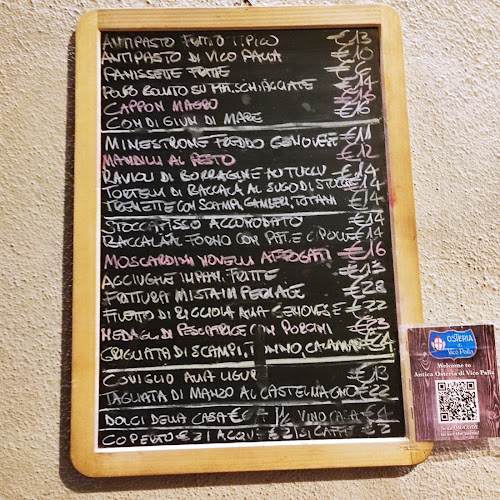 ANTIPASTO FUTTO TIPICO €13
ANTIPASTO DI VICO PALLA €10
PANISSETTE FRITTE
POLPO BOLLITO SU PAT. SCHIACCIATE €14
CAPPON MAGRO
CONDIGIUN DI MARE €16
MINESTRONE FREDDO GENOVESE €11
MANDILLI AL PESTO €12
RAVIOLI DI BORRAGINE AU TUCCU €14
TORTELLI DI BACCALÀ AL SUGO DI €14
TRENETTE CON SCAMPI, GAMBERI, TOTANI €14
STOCCAFISSO ACCOMODATO €14
BACCALÀ AL FORNO CON PAT. E CIPOLLE €14
MOSCARDINI NOVELLI AFFOGATI €16
ACCIUGHE IMPAN. FRITTE €13
FRITTURA MISTA IMPERIALE €28
FILETTO DI RICCIOLA ALLA GENOVESE €22
MEDAGL. DI PESCATRICE CON PORCINI
GRIGLIATA DI SCAMPI, TONNO, CALAMARI
CONIGLIO ALLA LIGURE €13
TAGLIATA DI MANZO AL CASTELMAGNO €22
DOLCI DELLA CASA € ½ VINO CASA €4
COPERTO €2 | ACQUA €2 | CAFFÈ €2
OSTERIA
di
Vico Palla
Welcome to
Antica Osteria di Vico Palla